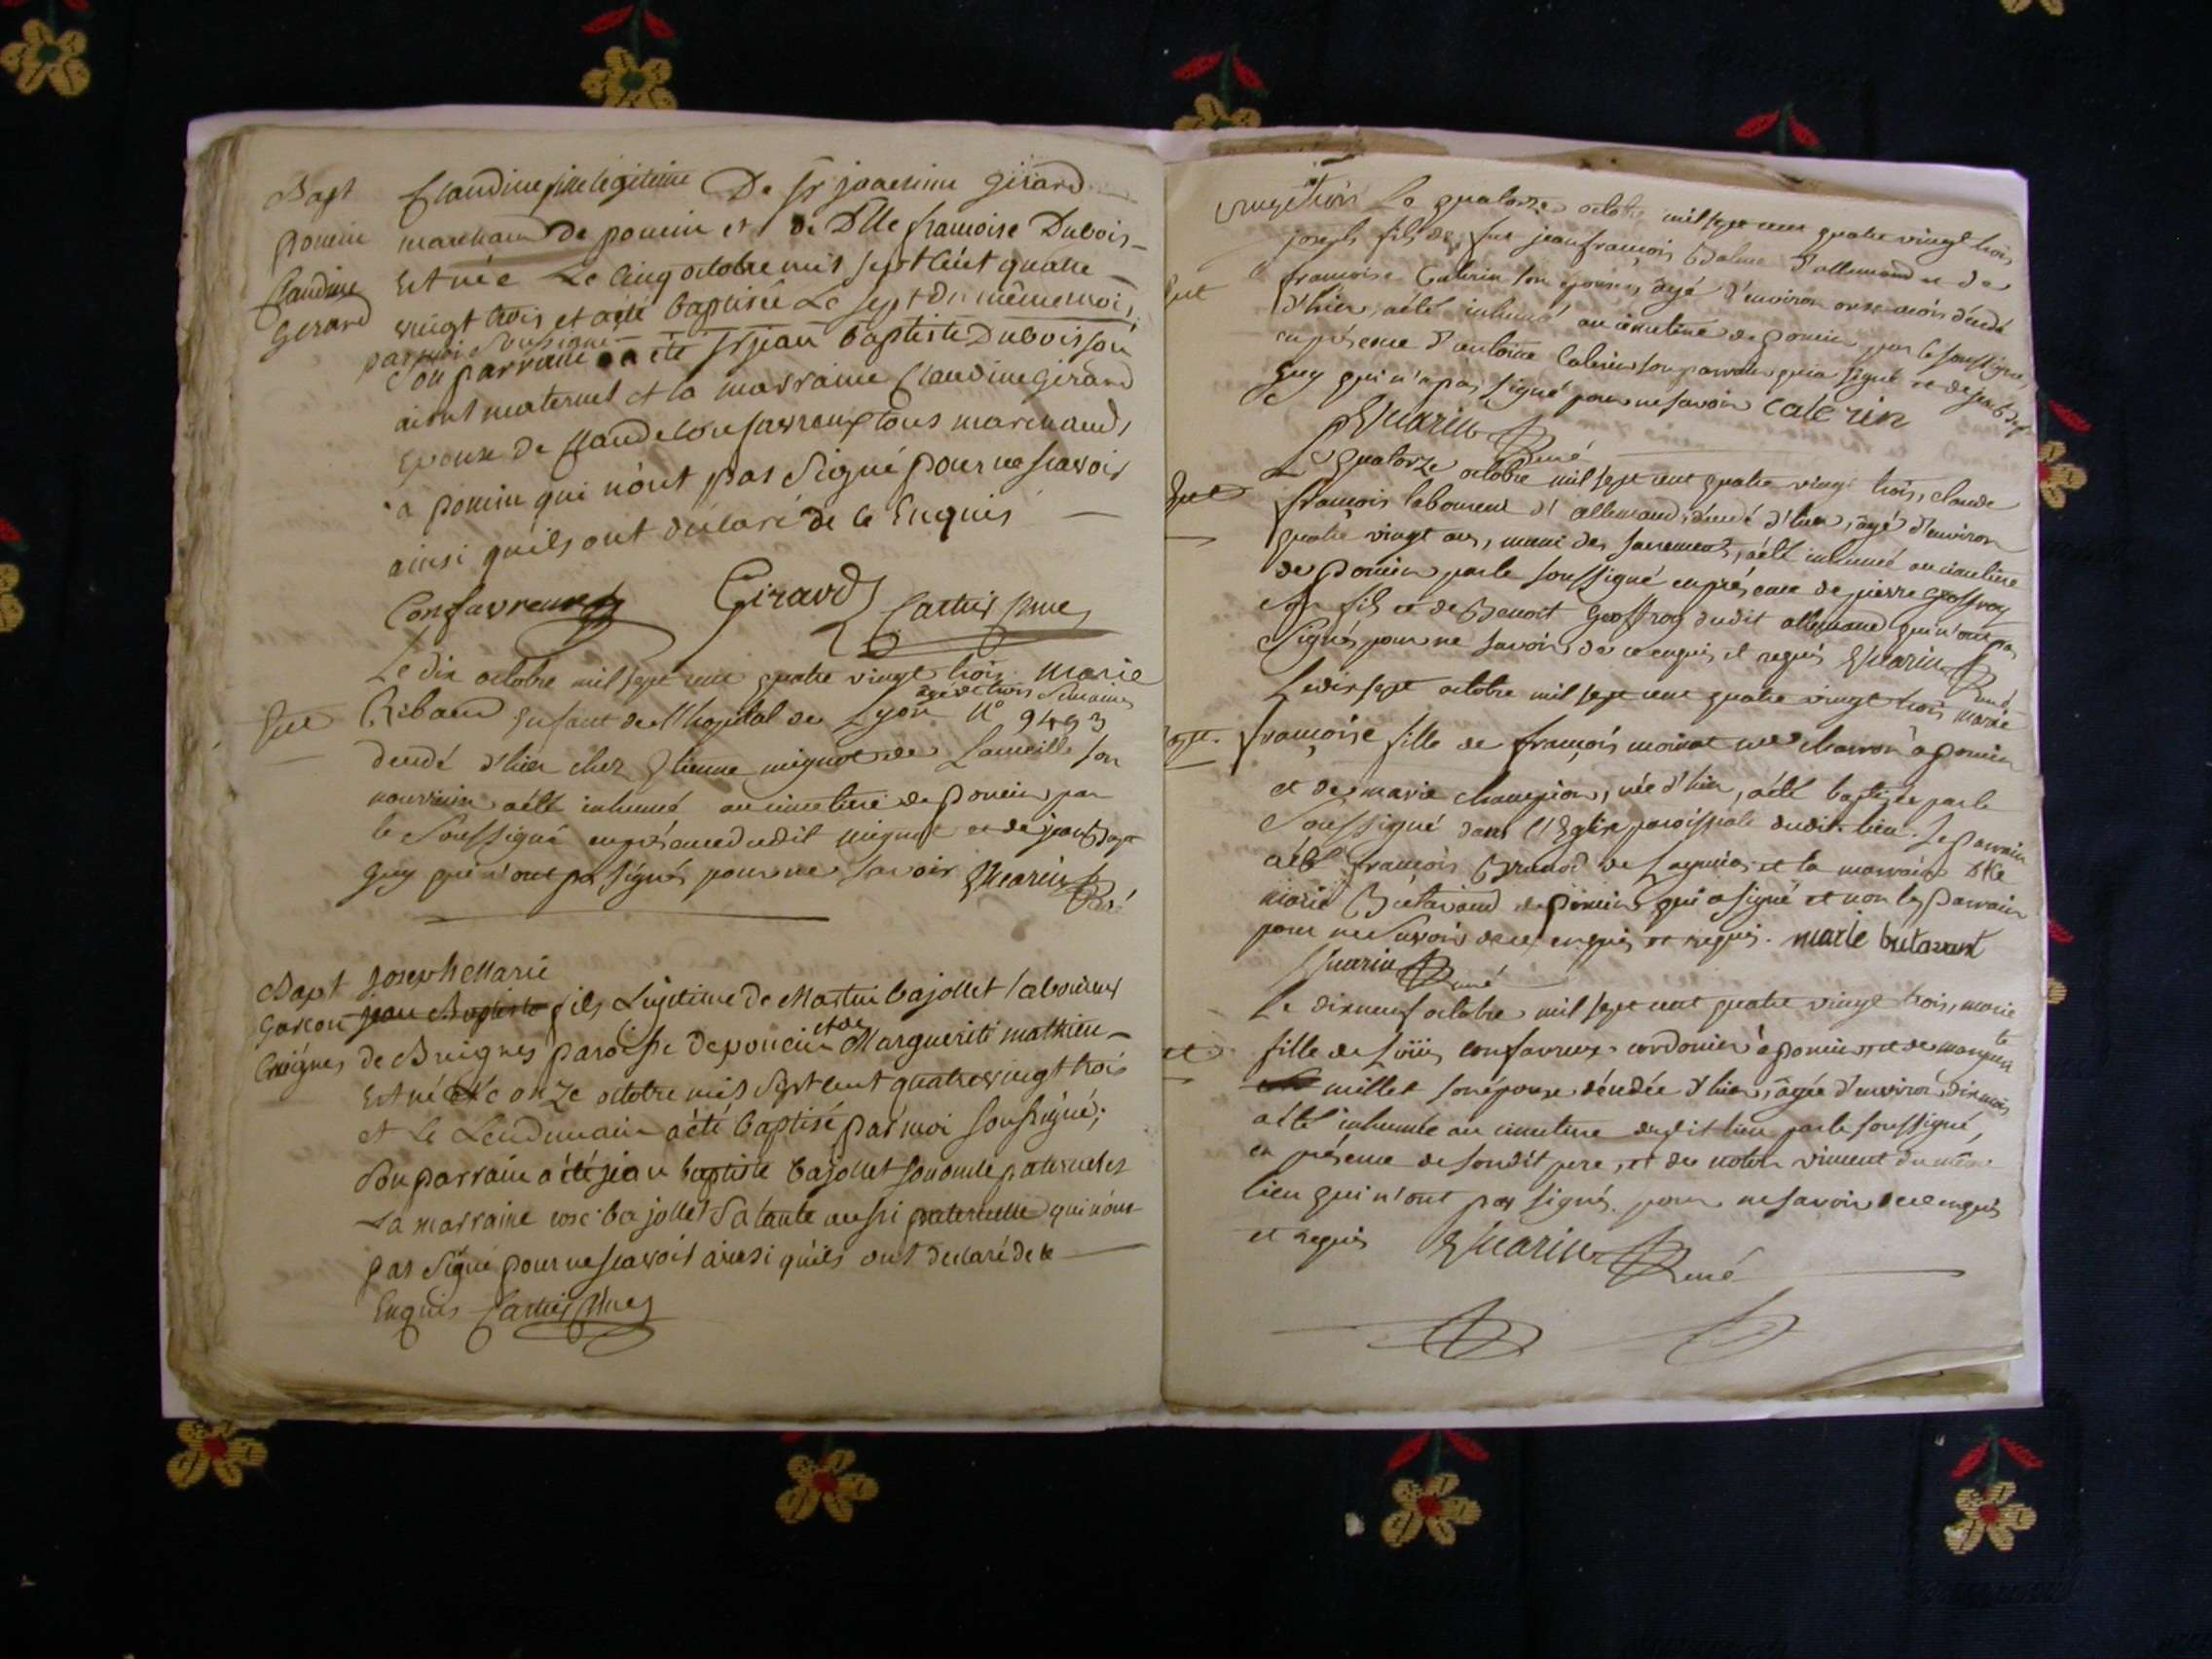 Bapt Claudine fille légitime De Sr joachim Girard
poncin marchand de poncin et de Dlle francoise Dubois
Claudine Est née Le cinq octobre mil sept cent quatre
Gerard vingt trois et a été baptisée Le sept du même mois,
par moi soussigné
Son parrain a été Sr jean baptiste Dubois son
aieul maternel et la marraine Claudine Girard
Epouse de Claude Confavreux tous marchands
a poncin qui n'ont pas signé pour ne scavoir
ainsi qu'ils ont déclaré de ce Enquis
Confavreux Girard
Le dix octobre mil sept cent quatre vingt trois Marie
agée de trois semaines
Ribaud Enfant de l'hopital de Lyon n° 9493
décédé d'hier chez Etienne mignot de son
nourricier a été inhumé au cimetiere de poncin par
le soussigné en présence dudit mignot et de jean Bapt
guy qui n'ont pas signés pour ne savoir
Bapt joseph Marie
Garcon jean Baptiste fils Légitime de Martin bajollet laboureur
et de
Breignes de Breignes paroisse de poncin Marguerite mathieu
Est né le onze octobre mil sept cent quatre vingt trois
et Le Lendemain a été baptisé par moi soussigné;
Son parrain a été jean baptiste bajollet son oncle paternel et
La marraine bajollet Sa tante aussi paternelle qui n'ont
pas signé pour ne scavoir ainsi qu'ils ont declaré de ce
Enquis
vingt trois Le quatorze octobre mil sept cent quatre vingt trois
joseph fils de feu jean françois Balme d'allemand et de
françoise Caterin son épouse, agé d'environ onze mois décédé
d'hier, a été inhumé au cimetiere de poncin par le soussigné
en présence d'antoine Caterin son parrain qui a signé et de jean Bapt
guy qui n'a pas signé pour ne savoir caterin
Le quatorze octobre mil sept cent quatre vingt trois, claude
françois laboureur d'allemand, décédé d'hier, agé d'environ
quatre vingt ans, muni des sacrements, a été inhumé au cimetiere
de poncin par le soussigné en présence de pierre geoffroy
son fils et de Benoit geoffroy dudit allemand qui n'ont pas
signés, pour ne savoir de ce enquis et requis
Le dix sept octobre mil sept cent quatre vingt trois marie
françoise fille de françois charron a poncin
et de marie champion, née d'hier, a été baptisée par le
soussigné dans l'Eglise paroissiale dudit lieu. Le parrain
a été françois Brunod de et la marraine Dlle
marie Butavand de poncin qui a signé et non le parrain
pour ne savoir de ce enquis et requis. marie butavant
Le dix neuf octobre mil sept cent quatre vingt trois, marie
fille de Loüis confavreux cordonier a poncin et de marguerite
millet son épouse, décédée d'hier, agée d'environ dix mois
a été inhumée au cimetiere dudit lieu par le soussigné,
en présence de son dit pere, et de vincent du même
lieu qui n'ont pas signés pour ne savoir de ce enquis
et requis